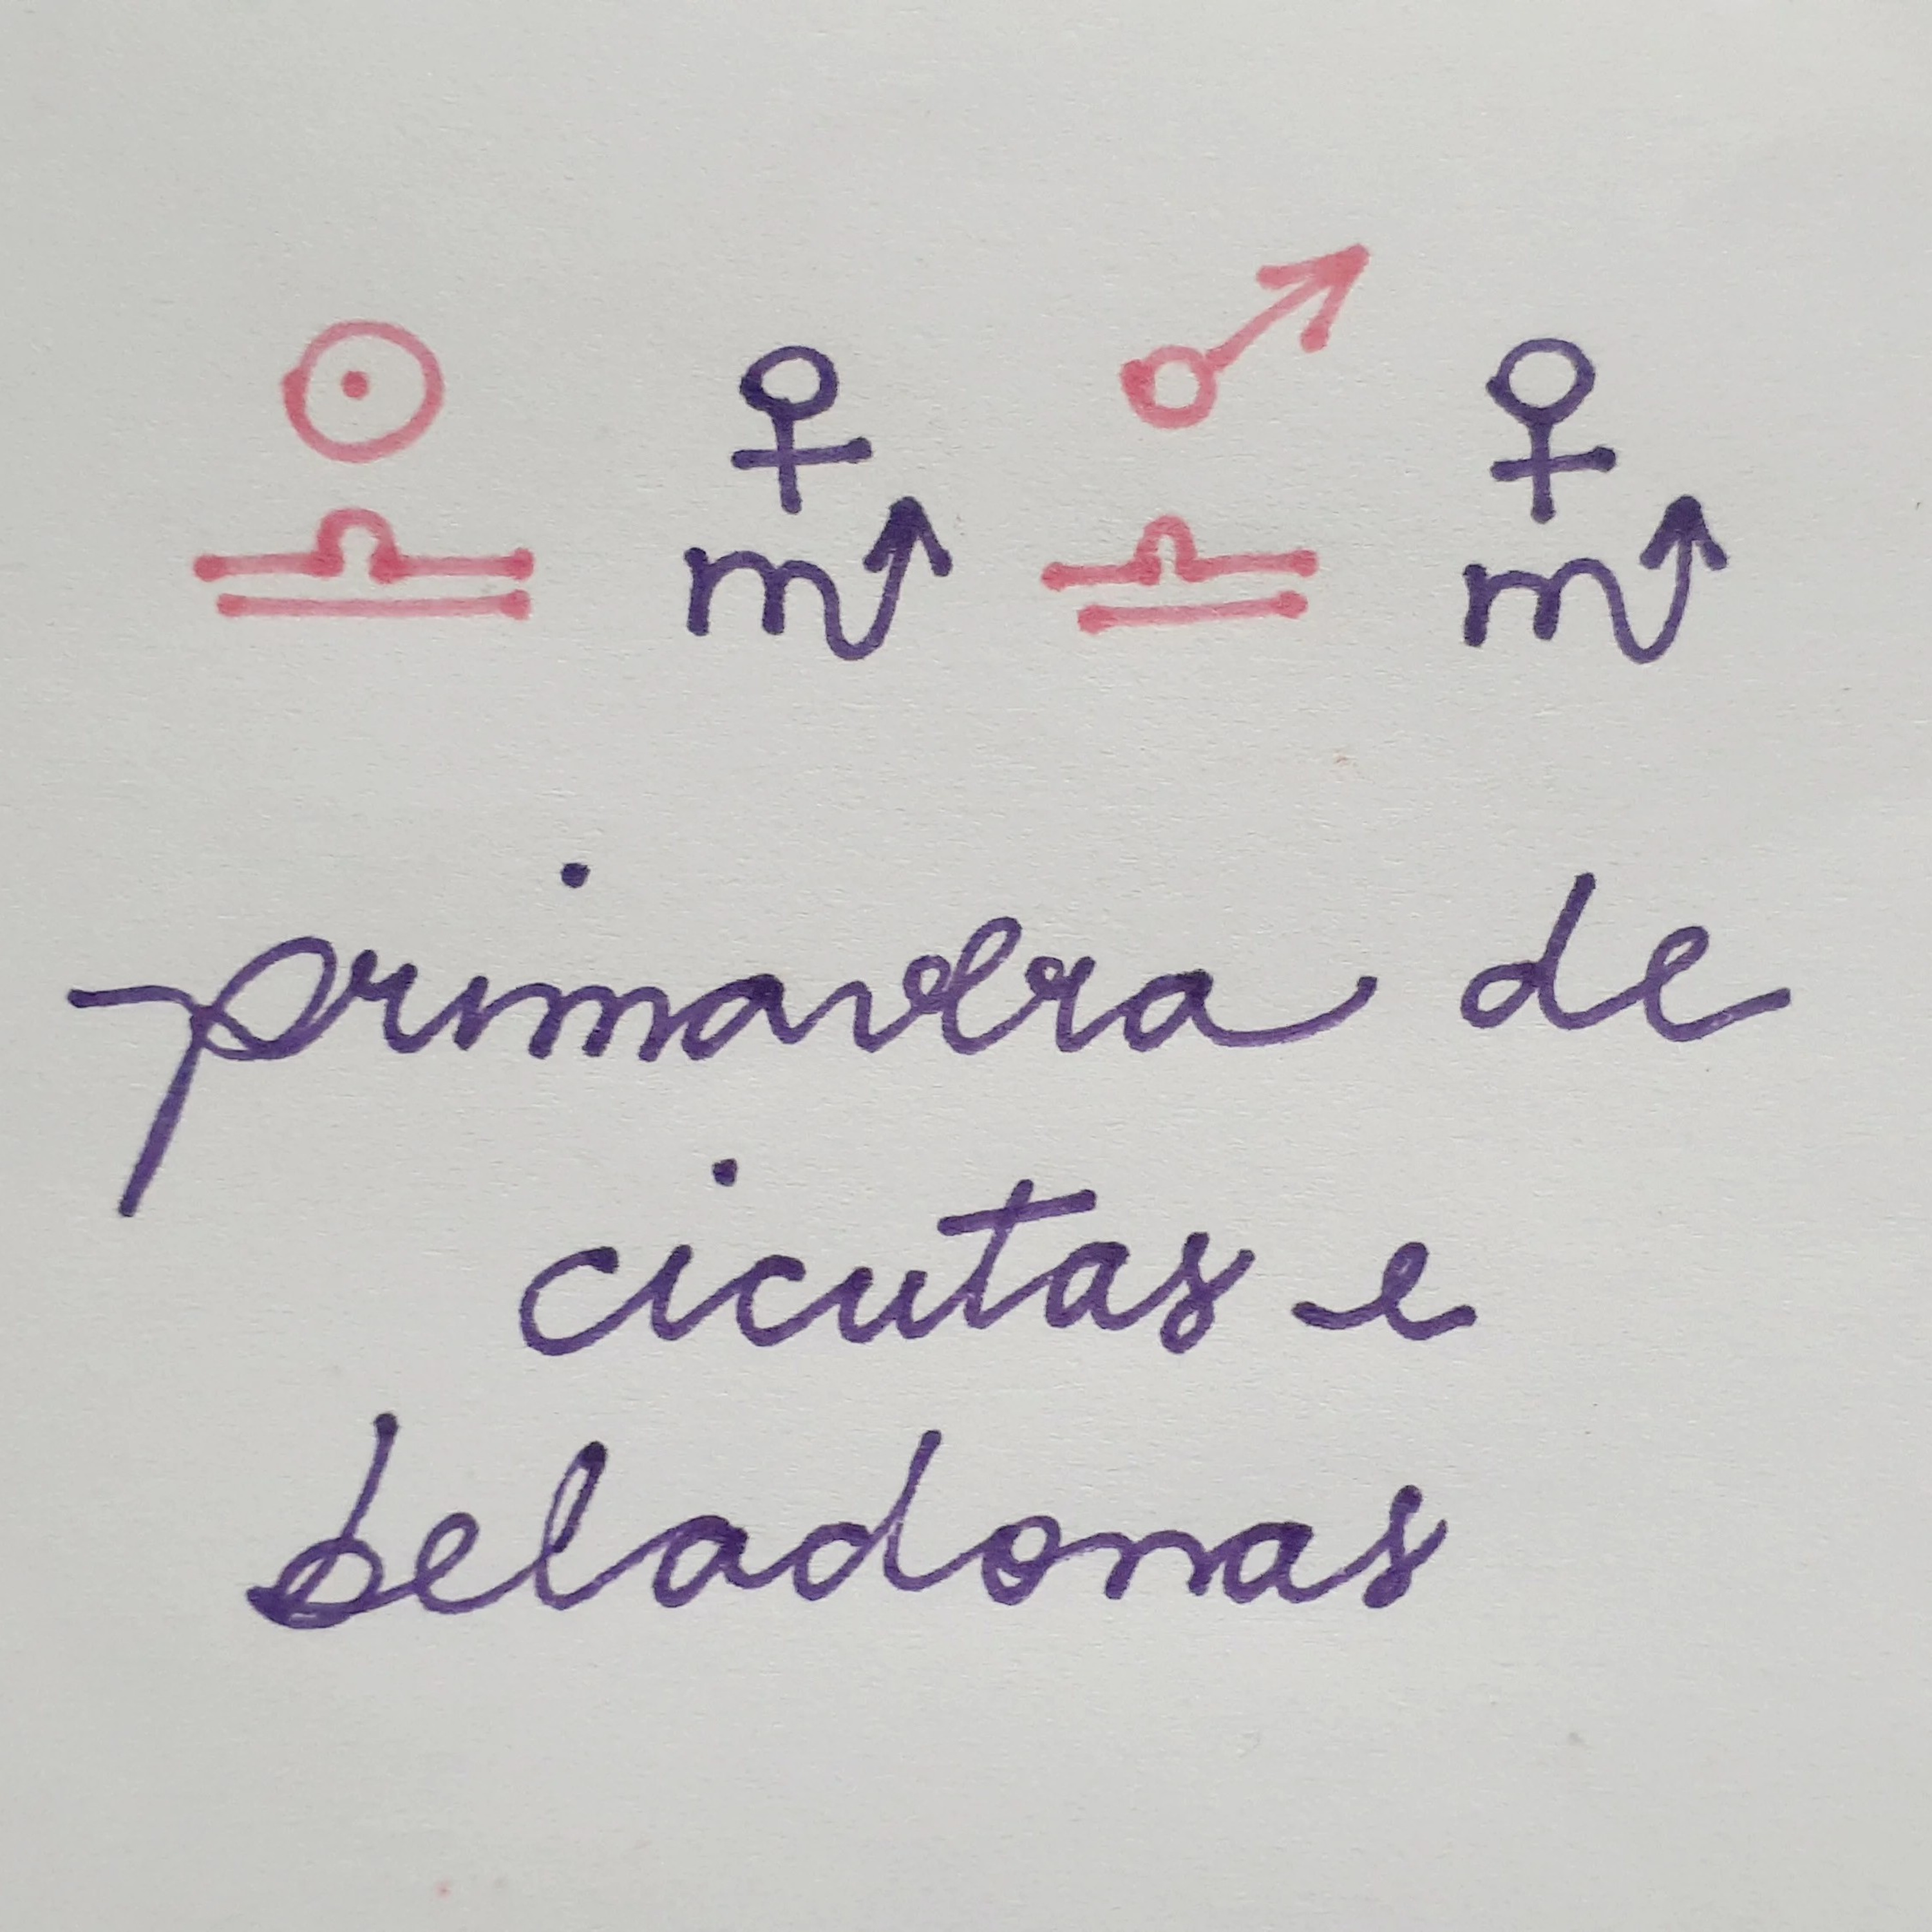 ☉ ♀ ♂ ♀
♎ ♏ ♎ ♏
primavera de
cicutas e
beladonas